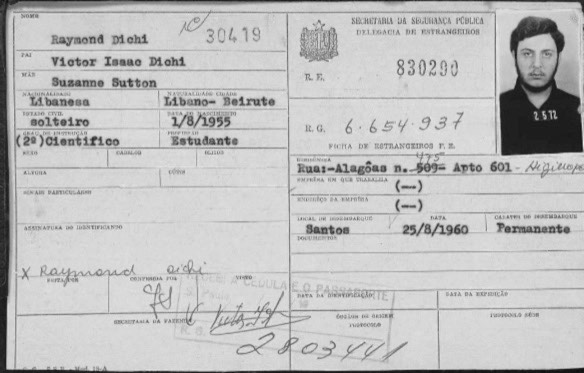 NOME
Raymond Dichi
30419
PAI
Victor Isaac Dichi
MÃE
Suzanne Sutton
NACIONALIDADE
NATURALIDADE CIDADE
Libanesa
Libano- Beirute
ESTADO CIVIL
DATA DO NASCIMENTO
solteiro
1/8/1955
GRAU DE INSTRUÇÃO
PROFISSÃO
(2º)Cientifico
Estudante
SEXO
CABELOS
OLHOS
ALTURA
CÚTIS
SINAIS PARTICULARES
ASSINATURA DO IDENTIFICANDO
X Raymond Dichi
CONFERIDA POR
VISTO
SECRETARIA DA FAZENDA
SECRETARIA DA SEGURANÇA PÚBLICA
DELEGACIA DE ESTRANGEIROS
R. E.
830290
R. G.
6.654.937
FICHA DE ESTRANGEIROS P. E.
2 5 72
RESIDÊNCIA
475
Rua:-Alagôas n. 509- Apto 601 -
EMPRÊSA EM QUE TRABALHA
(--)
ENDEREÇO DA EMPRÊSA
(--)
LOCAL DE DESEMBARQUE
DATA
CARATER DO DESEMBARQUE
Santos
25/8/1960
Permanente
DOCUMENTOS
A CEDULA E O PASSAPORTE
DATA DA IDENTIFICAÇÃO
DATA DA EXPEDIÇÃO
PROTOCOLO
PROTOCOLO SÉRIE
2803441